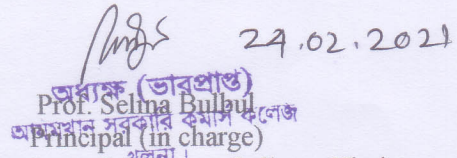 24.02.2021
অধ্যক্ষ (ভারপ্রাপ্ত)
Prof. Selina Bulbul
আযমখান সরকারি কমার্স কলেজ
Principal (in charge)
খুলনা।